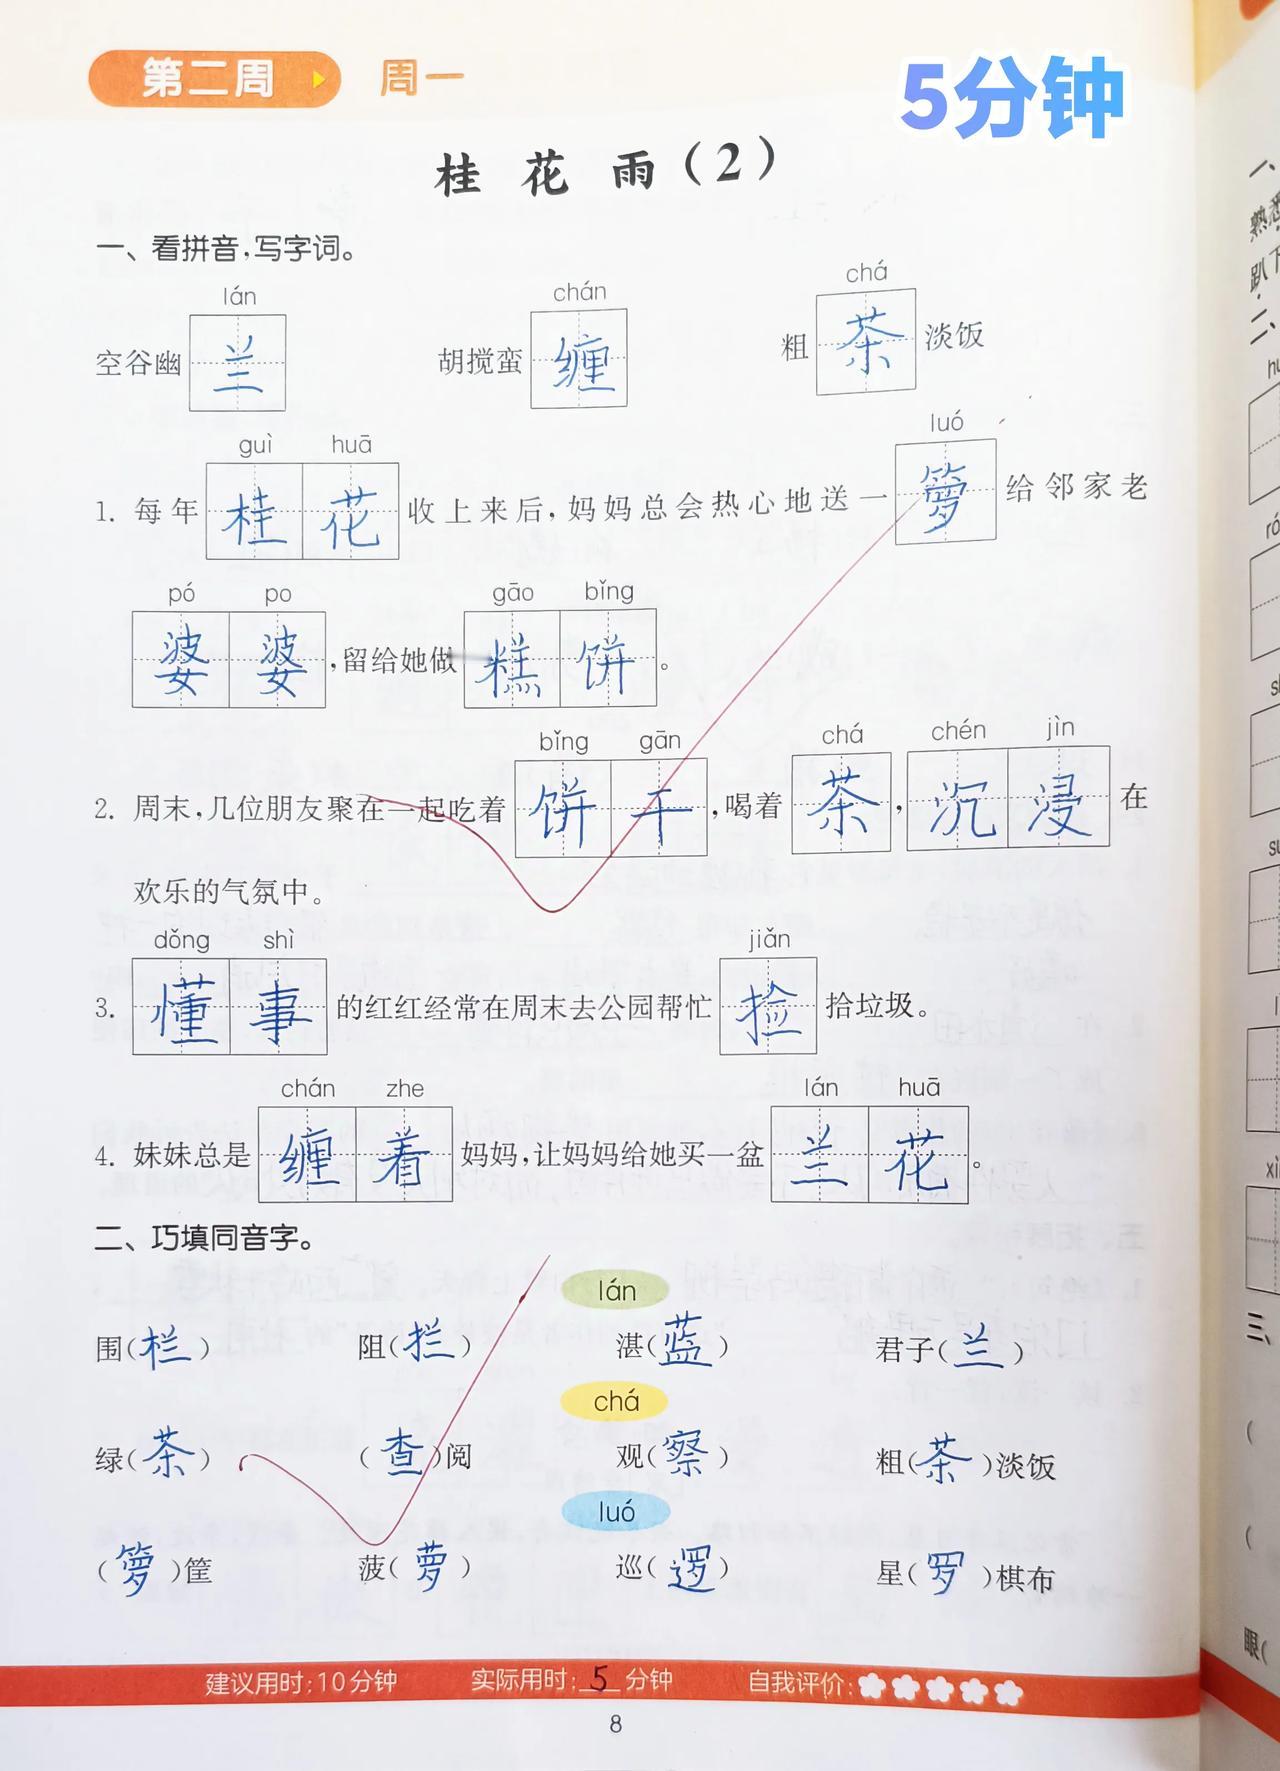 第二周 周一
5分钟
桂花雨（2）
一、看拼音，写字词。
lán chán chá
空谷幽兰 胡搅蛮缠 粗茶淡饭
guì huā luó
1. 每年桂花收上来后，妈妈总会热心地送一箩给邻家老
pó po gāo bǐng
婆婆，留给她做糕饼。
bǐng gān chá chén jìn
2. 周末，几位朋友聚在一起吃着饼干，喝着茶，沉浸在
欢乐的气氛中。
dǒng shì jiǎn
3. 懂事的红红经常在周末去公园帮忙捡拾垃圾。
chán zhe lán huā
4. 妹妹总是缠着妈妈，让妈妈给她买一盆兰花。
二、巧填同音字。
lán
围（栏） 阻（拦） 湛（蓝） 君子（兰）
chá
绿（茶） （查）阅 观（察） 粗（茶）淡饭
luó
（箩）筐 菠（萝） 巡（逻） 星（罗）棋布
建议用时：10分钟 实际用时：5分钟 自我评价：
8
一、
趴下
二、
三、
眼（